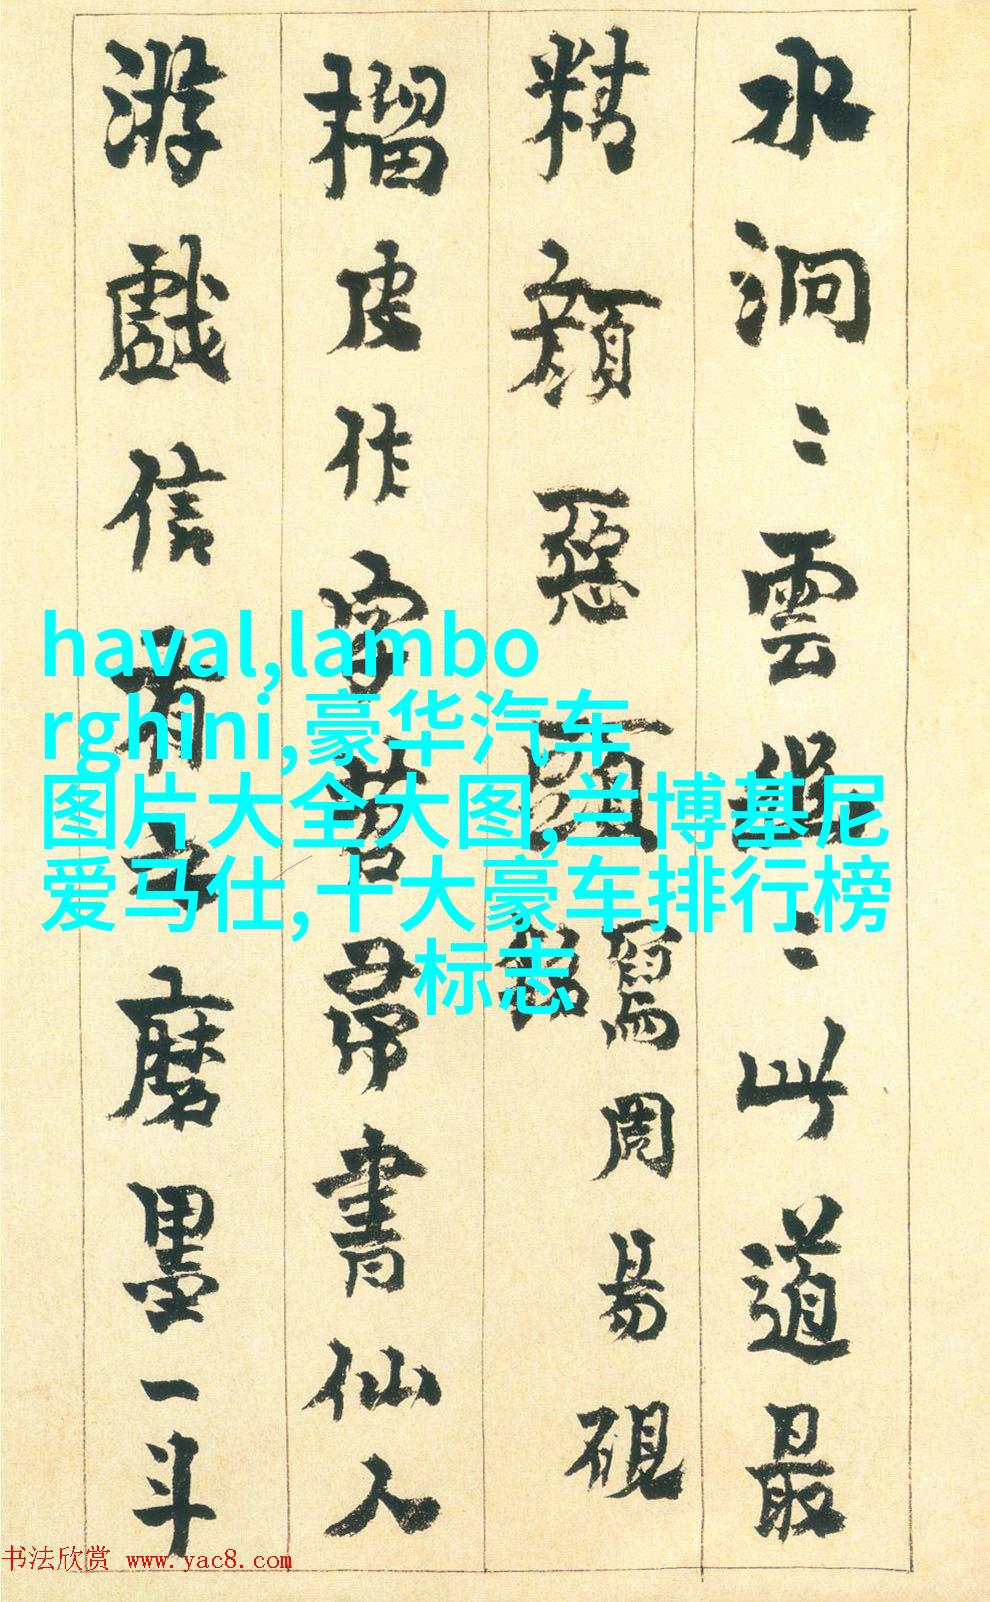 水洞〻雲〻此道最
精顏惡寫周易硯
銘
榴皮作字苕帚書仙人
游戲信有之磨墨一斗
haval,lambo
rghini,豪华汽车
图片大全大图,兰博基尼
爱马仕,十大豪车排行榜
标志
书法欣赏 www.yac8.com